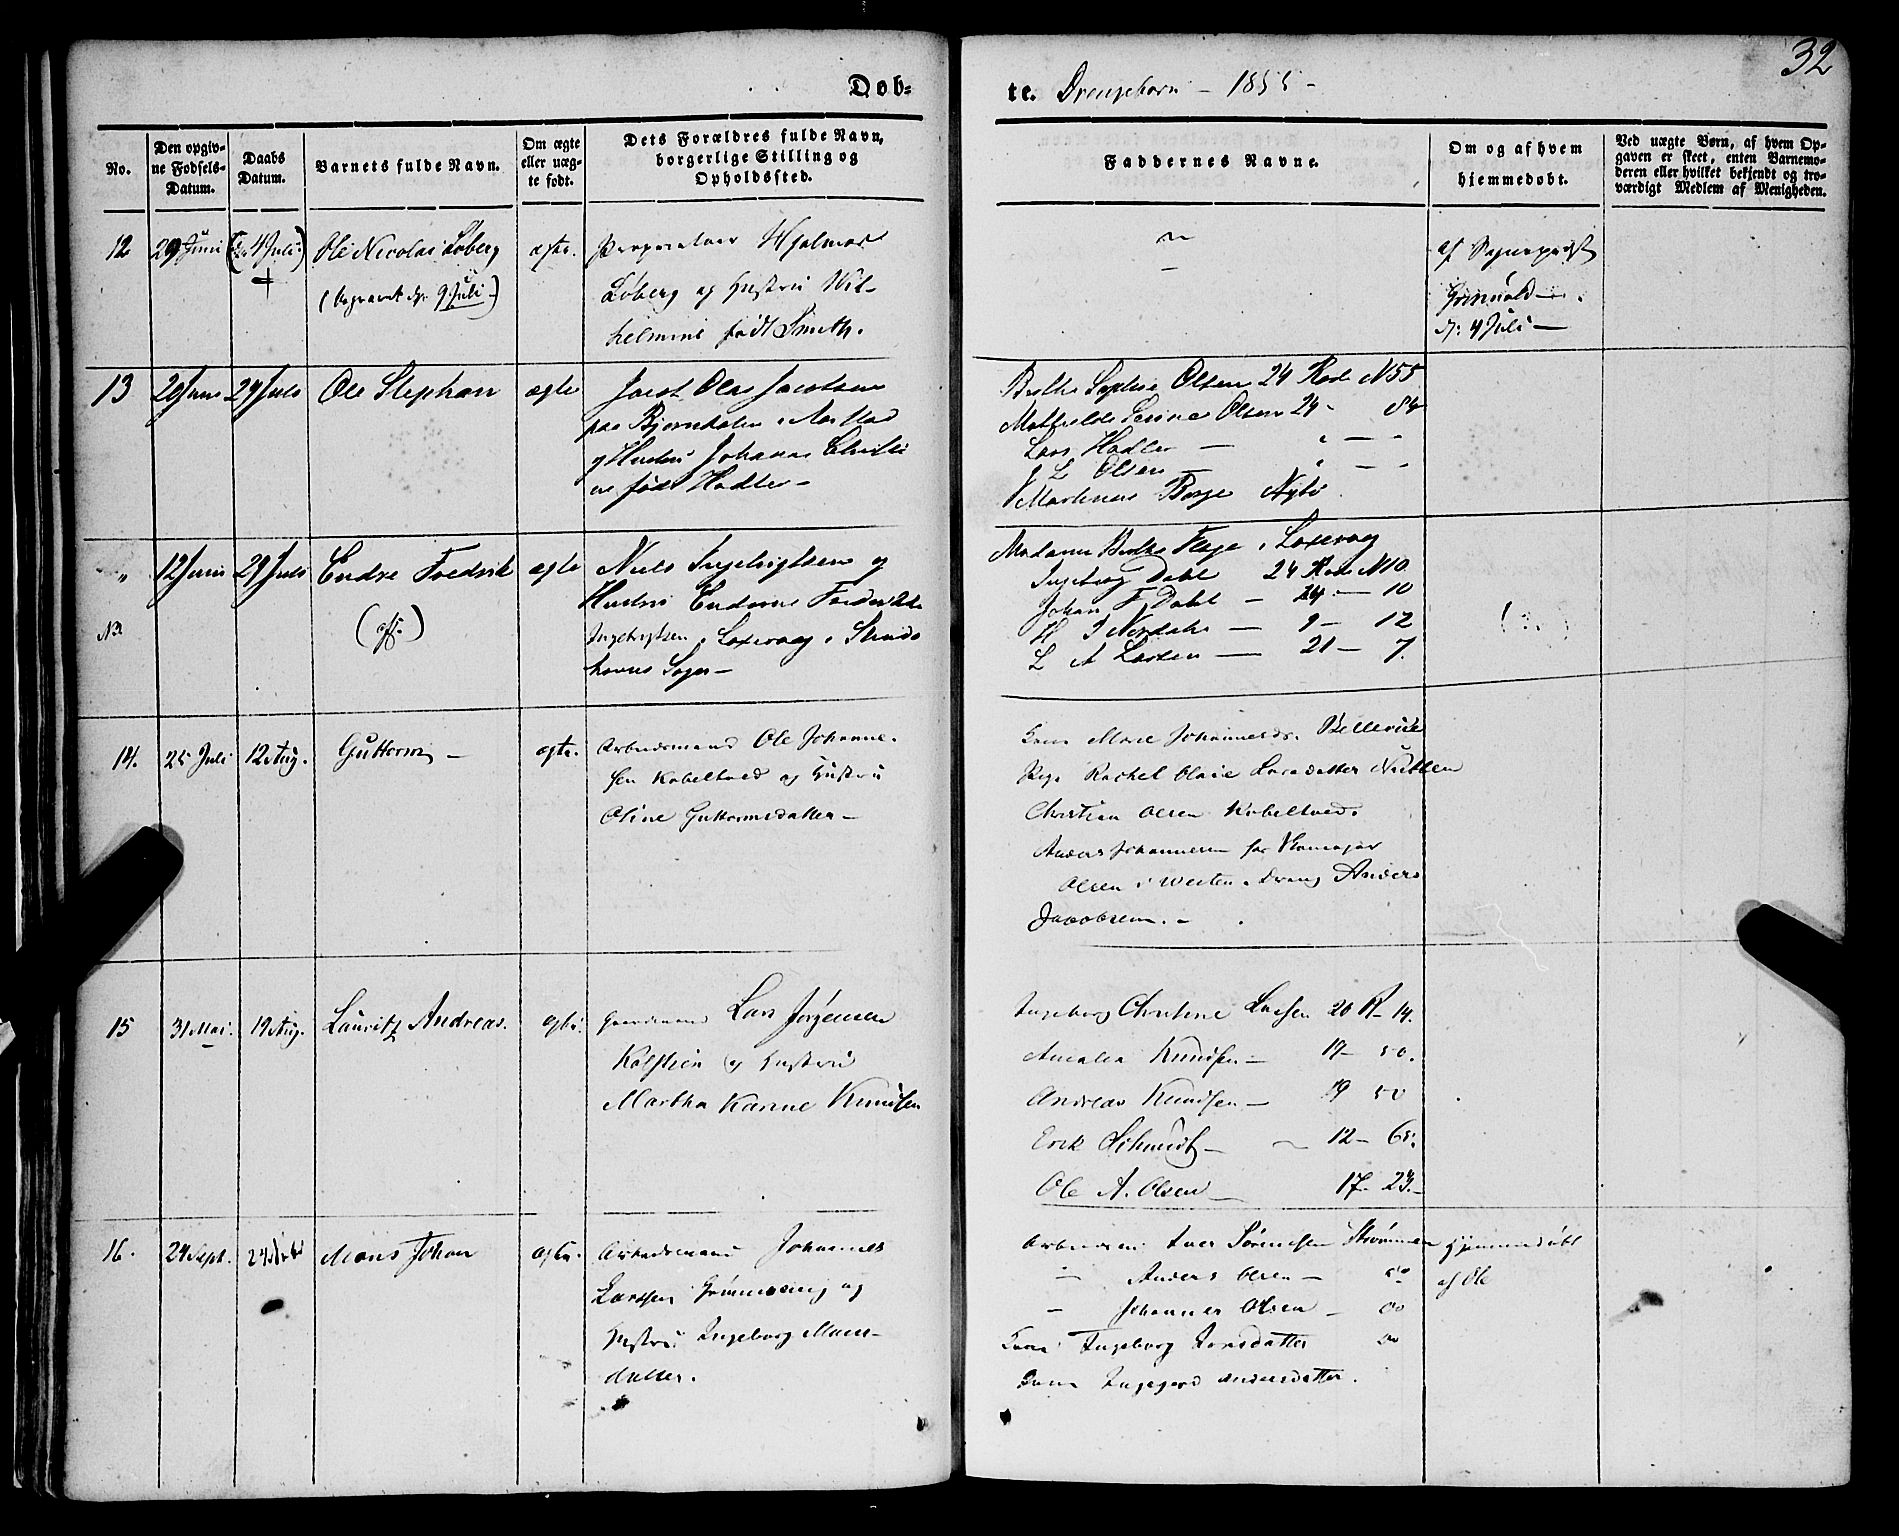 32
Døb-
te. Drengebørn - 1855 -
No.
Den opgiv-
ne Fødsels-
Datum.
Daabs
Datum.
Barnets fulde Navn.
Om ægte
eller uæg-
te født.
Dets Forældres fulde Navn,
borgerlige Stilling og
Opholdssted.
Faddernes Navne.
Om og af hvem
hjemmedøbt.
Ved uægte Børn, af hvem Op-
gaven er skeet, enten Barnemo-
deren eller hvilket bekjendt og tro-
værdigt Medlem af Menigheden.
12
29 Juni
4 Juli
Ole Nicolai Løberg
(begravet d. 9 Juli -)
ægte.
Hjalmar
Løberg og Hustru Wil-
helmine født Smith.
af Sognepræst
Grimvold
d: 4 Juli -
13
20 Juni
29 Juli
Ole Stephan
ægte
Jacob Olai Jacobsen
paa Bjørndalen
og Hustru Johanne Christi
ne født Hadler -
Berthe Sophie Olsen 24 Rode N 55
Mathilde Serine Olsen 24 -
Lars Hadler -
L Olsen -
Martinus Berge Nybø
"
12 Juni
29 Juli
Endre Fredrik
ægte
Niels Ingebrigtsen og
Hustru Endorine Fredrikke
Ingebrigtsen i Laxevaag i Strud
havns Sogn -
Madame Berthe Flage i Laxevaag
Ingeborg Dahl 24 Rode N 10
Johan F Dahl - 24 - 10
H J Nordahl - 9 - 12
L A Larsen - 21 - 7.
14.
25 Juli
12 Aug.
Guttorm -
ægte.
Arbeidsmand Ole Johanne-
sen Kobeltved og Hustru
Oline Guttormsdatter -
Kone Marie Johannesdr. Bellevue
Pige Rachel Olaie Larsdatter Nubben
Christian Olsen Kobeltved.
Anders Johannesen
Olsen i Dreng Anders
Jacobsen. -
15
31 Mai.
19 Aug.
Lauritz Andreas.
ægte.
Gaardmand Lars Jørgensen
Kalstien og Hustru
Martha Karine Knudsen
Ingeborg Christine Larsen 20 R - 14.
Amalia Knudsen - 19 - 50.
Andreas Knudsen - 19 50
Erik Schmidt - 12 - 68.
Ole A. Olsen - 17 - 23. -
16.
24 Sept.
Mons Johan
ægte.
Arbeidsmand Johannes
Larssen og
Hustru Ingeborg Mons-
datter.
Iver Sørensen Strømmen
- Anders Olsen - do
- Johannes Olsen - do
Kone Ingeborg Jonsdatter do
Kone Ingegerd Andersdatter.
Hjemmedøbt
af Ole